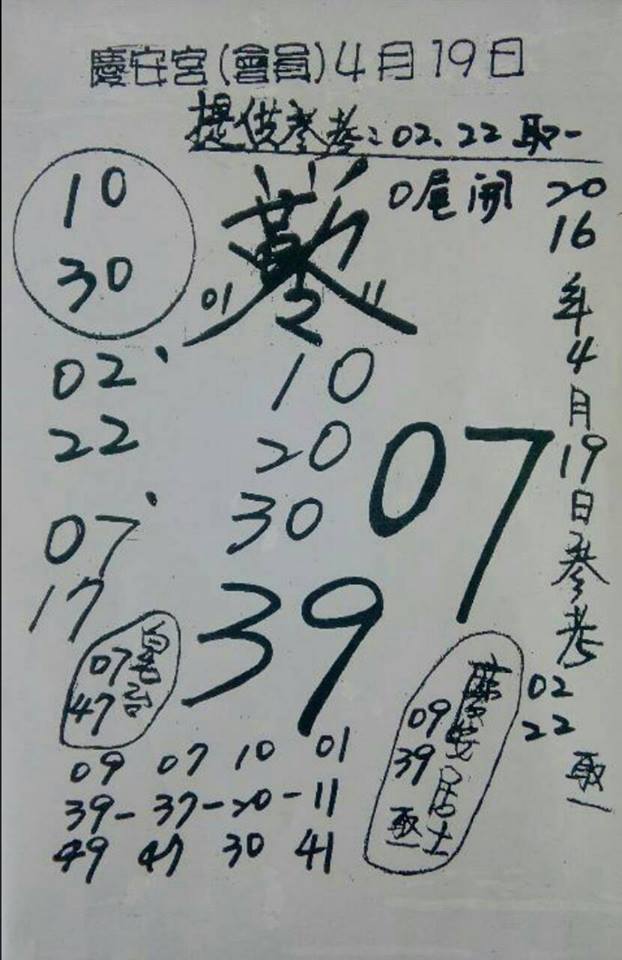 慶安宮(會員)4月19日
提供參考:02、22取一
10
30
0尾開
01
11
02、
22
07、
17
10
20
30
07
39
2016年4月19日參考
02
22
取一
07
47
慶安居士
09
39
取一
09 07 10 01
39-37-20-11
49 47 30 41